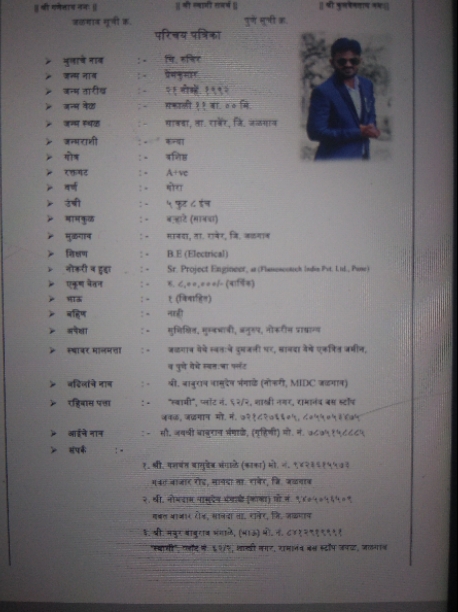 || श्री गणेशाय नमः || || श्री स्वामी समर्थ || || श्री कुलदेवताय नमः ||
जळगाव सूची क्र. पुणे सूची क्र.
परिचय पत्रिका
➤ मुलाचे नाव :- चि.
➤ जन्म नाव :- प्रेमकुमार
➤ जन्म तारीख :- १९९२
➤ जन्म वेळ :- सकाळी ११ वा. ०० मि.
➤ जन्म स्थळ :- सावदा, ता. रावेर, जि. जळगाव
➤ जन्मराशी :- कन्या
➤ गोत्र :- वशिष्ठ
➤ रक्तगट :- A+ve
➤ वर्ण :- गोरा
➤ उंची :- ५ फुट ८ इंच
➤ मामकुळ :- वऱ्हाटे (सावदा)
➤ मुळगाव :- सावदा, ता. रावेर, जि. जळगाव
➤ शिक्षण :- B.E (Electrical)
➤ नोकरी व हुद्दा :- Sr. Project Engineer, at India Pvt. Ltd., Pune)
➤ एकूण वेतन :- रु. ८,००,०००/- (वार्षिक)
➤ भाऊ :- १ (विवाहित)
➤ बहिण :- नाही
➤ अपेक्षा :- सुशिक्षित, सुस्वभावी, अनुरुप, नोकरीस प्राधान्य
➤ स्थावर मालमत्ता :- जळगाव येथे स्वतःचे दुमजली घर, सावदा येथे एकत्रित जमीन,
व पुणे येथे स्वतःचा फ्लॅट
➤ वडिलांचे नाव :- श्री. बाबुराव वासुदेव भंगाळे (नोकरी, MIDC जळगाव)
➤ रहिवास पत्ता :- "स्वामी", प्लॉट नं. ६२/२, शास्त्री नगर, रामानंद बस स्टॉप
जवळ, जळगाव मो. नं.
➤ आईचे नाव :- सौ. बाबुराव भंगाळे, (गृहिणी) मो. नं.
➤ संपर्क :-
१. श्री. यशवंत वासुदेव भंगाळे (काका) मो. नं.
बाजार रोड, सावदा ता. रावेर, जि. जळगाव
२. श्री. वासुदेव भंगाळे (काका) मो नं.
बाजार रोड, सावदा ता. रावेर, जि. जळगाव
३. श्री. मयुर बाबुराव भंगाळे, (भाऊ) मो. नं.
"स्वामी", प्लॉट नं ६२/२, शास्त्री नगर, रामानंद बस स्टॉप जवळ, जळगाव